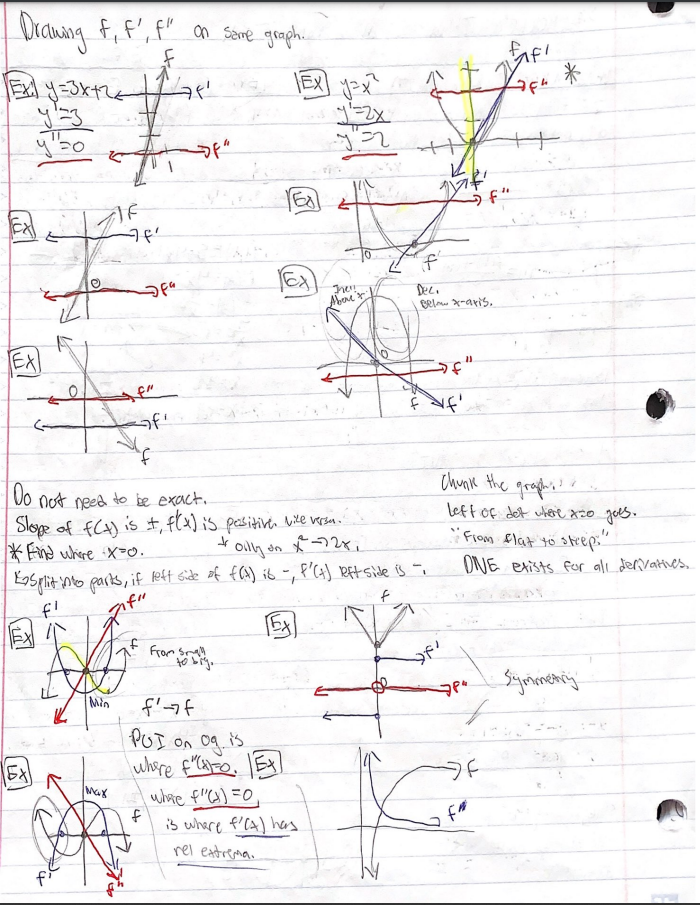 Drawing f, f', f" on same graph.
Ex: y=3x+2
y'=3
y"=0
f
f'
f"
Ex y=x²
y'=2x
y"=2
f
f'
f"
*
Ex
f
f'
f"
0
Ex
f'
f"
f
0
Ex
Above x.
Dec.
Below x-axis.
0
f"
f
f'
Ex
0
f"
f'
f
Do not need to be exact.
Slope of f(x) is ±, f'(x) is positive. vice versa.
* Find where x=0. * Only on x²→2x.
↳ Split into parts, if left side of f(x) is -, f'(x) left side is -.
Chunk the graph.
Left of dot where x=0 goes.
"From flat to steep."
DNE exists for all derivatives.
Ex
f'
f"
f
From small
to big.
Min
Ex
f
f'
0
f"
Symmetry
f'→f
POI on og is
where f"(x)=0.
where f"(x)=0
is where f'(x) has
rel extrema.
Ex
Max
f
f'
f"
Ex
f